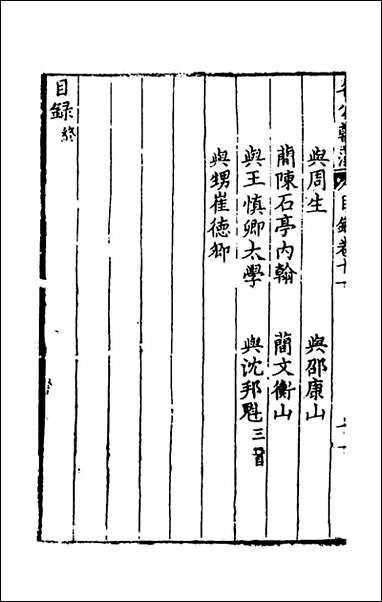 目録卷十
與周生　與邵康山
簡陳石亭内翰　簡文衡山
與王慎卿太學　與沈邦魁三首
與甥崔德卿
目録終